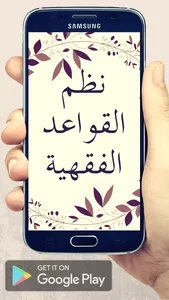 SAMSUNG
نظم
القواعد
الفقهية
GET IT ON
Google Play